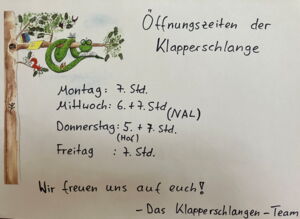 Öffnungszeiten der
Klapperschlange
Montag: 7. Std.
Mittwoch: 6. + 7. Std (NAL)
Donnerstag: 5. + 7. Std.
(Hof)
Freitag : 7. Std.
Wir freuen uns auf euch!
– Das Klapperschlangen-Team